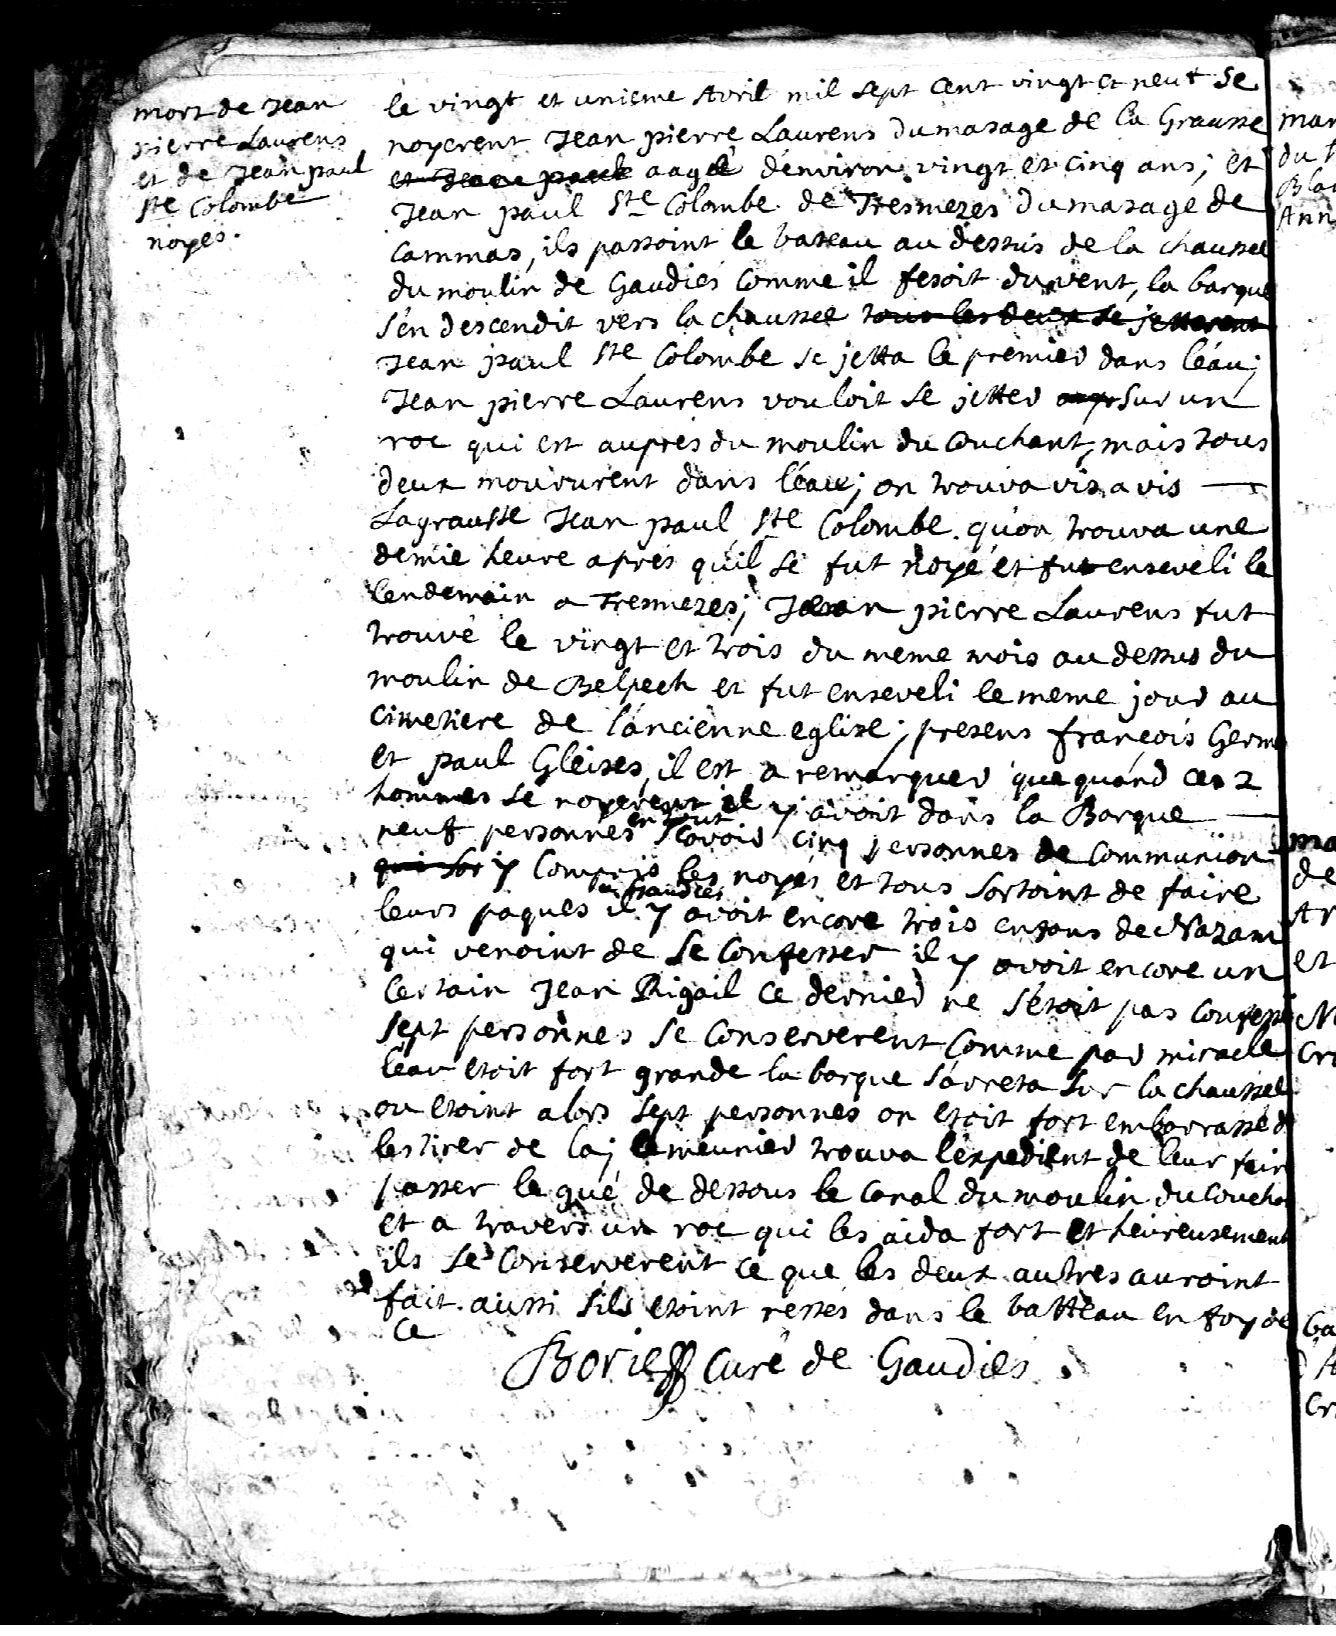 mort de Jean
pierre Laurens
et de Jean paul
Ste Colombe
noyés.
le vingt et unieme Avril mil sept cent vingt et neuf se
noyerent Jean pierre Laurens du masage de la Grausse
et Jean paul aagé d'environ vingt et cinq ans; et
Jean paul Ste Colombe de Tresmezes du masage de
Cammas, ils passoint le bateau au dessus de la chaussee
du moulin de Gaudiés comme il fesoit du vent, la barque
s'en descendit vers la chaussee tous les deux se jetterent
Jean paul Ste Colombe se jetta le premier dans l'éau;
Jean pierre Laurens vouloit se jetter sur un
roc qui est auprés du moulin du couchant, mais tous
deux moururent dans l'éau; on trouva vis a vis —
Lagrausse Jean paul Ste Colombe. qu'on trouva une
demie heure aprés qu'il se fut noyé et fut enseveli le
lendemain a Tresmezes; Jean pierre Laurens fut
trouvé le vingt et trois du meme mois au dessus du
moulin de Belpech et fut enseveli le meme jour au
cimetiere de l'ancienne eglise; presens françois Germ
et paul Gleises, il est a remarquer que quand ces 2
hommes se noyerent il y avoit dans la Barque —
neuf personnes en tout sçavoir cinq personnes de communion
qui sor y compris les noyés et tous sortoint de faire
leurs paques a Gaudies il y avoit encore trois enfans de Mazam
qui venoint de se confesser il y avoit encore un
certain Jean Rigail ce dernier ne s'étoit pas confessé
sept personnes se conserverent comme par miracle
l'éau etoit fort grande la barque s'arreta sur la chaussee
ou etoint alors sept personnes on etoit fort embarrassé d
les tirer de la; le meunier trouva l'expedient de leur fair
passer le gué de dessous le canal du moulin du coucha
et a travers un roc qui les aida fort et heureusement
ils se conserverent ce que les deux autres auroint
fait aussi s'ils etoint restés dans le batteau en foy de
ce
Borie curé de Gaudies
mar
du
Bla
Ann
ma
de
Ar
et
Cr
ba
Cr